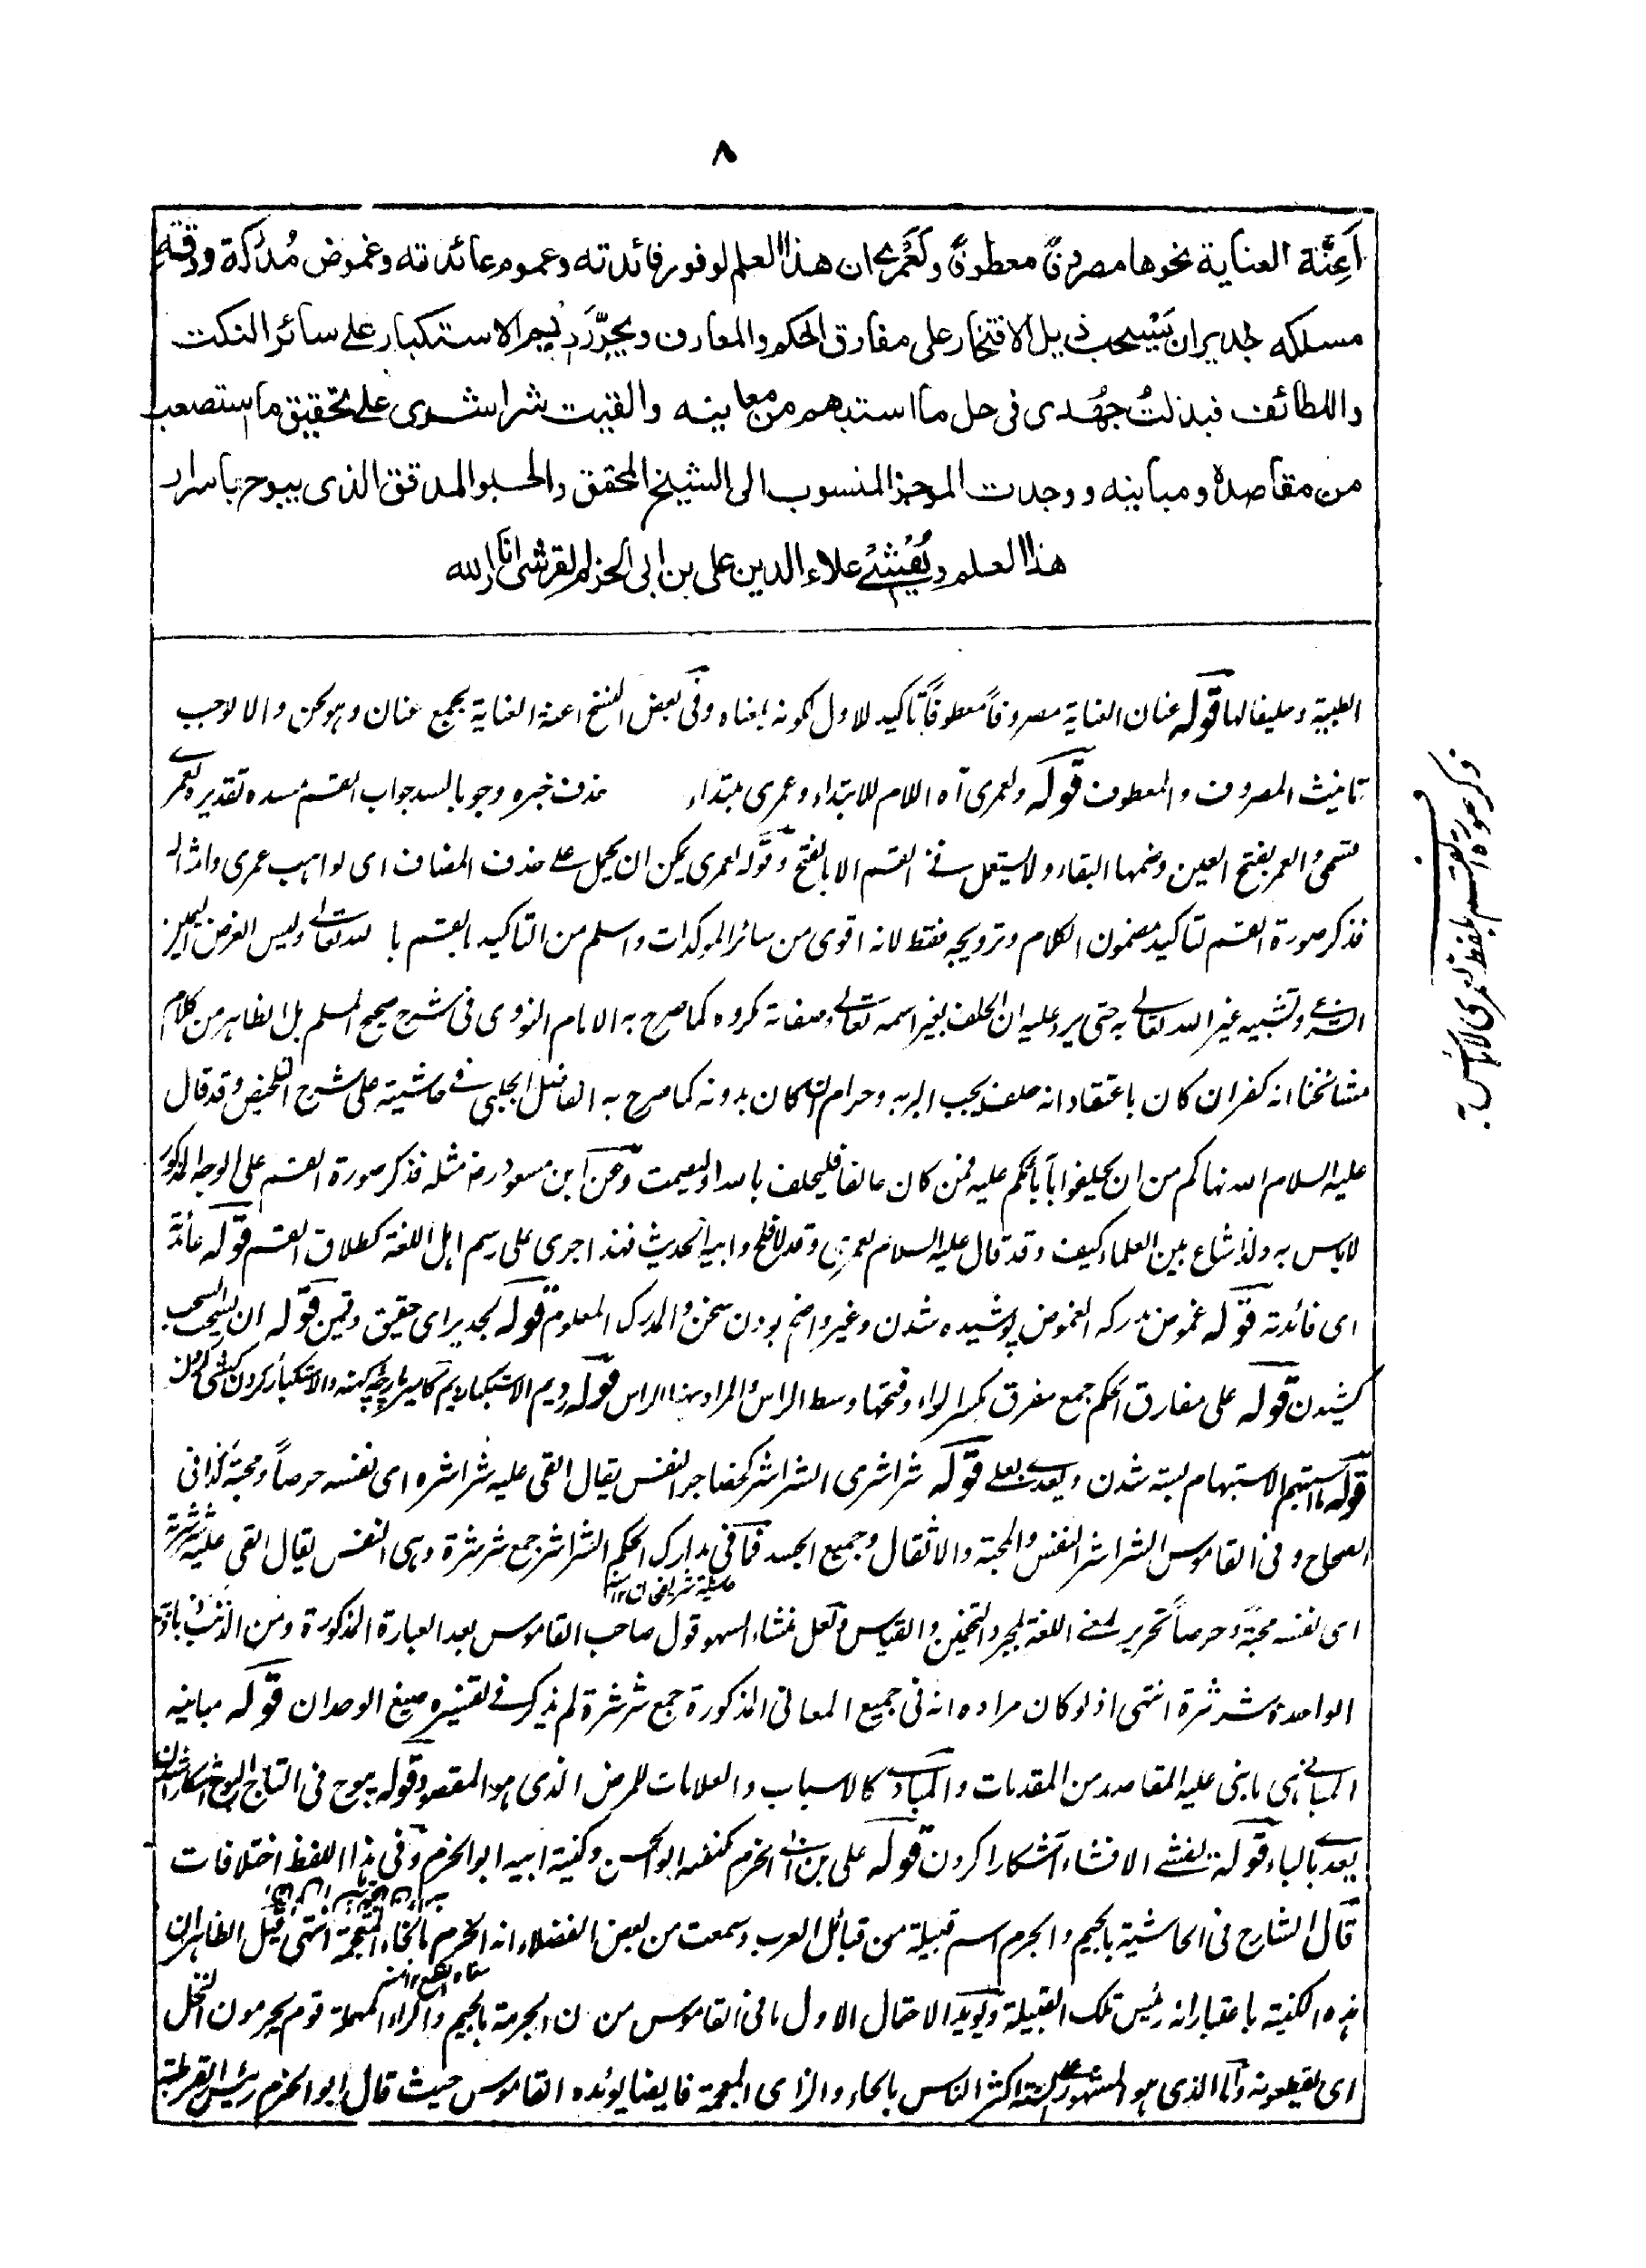 ٨
اَعِنَّة العناية نحوها مصروفًا معطوفًا ولَعَمْرِى ان هذا العلم لوفور فائدته وعموم عائدته وغموض مُدْرَكه ودقة
مسلكه لجدير ان يَسْحب ذيل الافتخار على مفارق الحكم والمعارف ويجرّ رديم الاستكبار على سائر النكت
واللطائف فبذلتُ جهُدى فى حل ما استبهم من معاينه والقيت شراشرى على تحقيق ما استصعب
من مقاصده ومباينه ووجدت الموجز المنسوب الى الشيخ المحقق والحبر المدقق الذى يبوح باسرار
هذا العلم ويُفْشِىْ علاء الدين على بن ابى الحزم القرشى انار الله
الطبية وحليفا لها قوله عنان العناية مصروفاً معطوفاً تاكيد للاول لكونه بمعناه وفى بعض النسخ اعنة العناية بجمع عنان وهو لحن والا لوجب
تانيث المصروف والمعطوف قوله ولعمرى آه اللام للابتداء وعمرى مبتداء حذف خبره وجوبا لسد جواب القسم مسده تقديره لعمرى
قسمى والعمر بفتح العين وضمها البقاء ولا يستعمل فى القسم الا بالفتح وقوله لعمرى يمكن ان يحمل على حذف المضاف اى لواهب عمرى وامثاله
فذكر صورة القسم لتاكيد مضمون الكلام وترويجه فقط لانه اقوى من سائر الموكدات واسلم من التاكيد بالقسم بالله تعالى وليس الغرض اليمين
الشرعى وتشبيه غير الله تعالى به حتى يرد عليه ان الحلف بغير اسمه تعالى وصفاته مكروه كما صرح به الامام النووى فى شرح صحيح المسلم بل الظاهر من كلام
مشائخنا انه كفر ان كان باعتقاد انه حلف يجب البر به وحرام ان كان بدونه كما صرح به الفاضل الجلبى فى حاشيته على شرح التلخيص وقد قال
عليه السلام الله نهاكم من ان تحلفوا بآبائكم عليه فمن كان حالفا فليحلف بالله او ليصمت وعن ابن مسعود رض مثله فذكر صورة القسم على الوجه المذكور
لا باس به ولذا شاع بين العلماء كيف وقد قال عليه السلام لعمرى وقد افلح وابيه الحديث فهذا جرى على رسم اهل اللغة كطلاق القسم قوله عائدته
اى فائدته قوله غموض مدركه الغموض پوشيده شدن وغير واضح بودن سخن والمدرك المعلوم قوله لجدير اى حقيق وقمين قوله ان يسحب السحب
كشيدن قوله على مفارق الحكم جمع مفرق بكسر الراء وفتحها وسط الراس والمراد بهذا الراس قوله رديم الاستكبار رديم كامير پارچه كهنه والاستكبار گردن كشى كردن
قوله ما استبهم الاستبهام بسته شدن ويعدى بعلى قوله شراشرى الشراشر كحضاجر النفس يقال القى عليه شراشره اى نفسه حرصاً ومحبة كذا فى
الصحاح وفى القاموس الشراشر النفس والمحبة والاثقال وجميع الجسد فما فى مدارك الحكم الشراشر جمع شرشرة وهى النفس يقال القى عليه شرشرة
اى نفسه محبة وحرصاً تحرير لمعنى اللغة لمجرد التخمين والقياس ولعل منشاء السهو قول صاحب القاموس بعد العبارة المذكورة ومن الذنب
الواحدة شرشرة انتهى اذ لو كان مراده انه فى جميع المعانى المذكورة جمع شرشرة لم يذكر فى تفسيره صيغ الوحدان قوله مباينه
المبانى هى ما بنى عليه المقاصد من المقدمات والمبادى كالاسباب والعلامات للمرض الذى هو المقصود قوله يبوح فى التاج البوح آشكارا شدن
يعدى بالباء قوله يفشى الافشاء آشكارا كردن قوله على بن ابى الحزم كنيته ابو الحسن وكنية ابيه ابو الحزم وفى هذا اللفظ اختلافات
قال الشارح فى الحاشية بالجيم والجرم اسم قبيلة من قبائل العرب وسمعت من بعض الفضلاء انه الخرم بالخاء المعجمة انتهى قيل الظاهر ان
هذه الكنية باعتبار انه رئيس تلك القبيلة ويؤيد الاحتمال الاول ما فى القاموس من ان الجرمة بالجيم والراء المهملة قوم يجرمون النخل
اى يقطعونه واما الذى هو المشهور على السنة اكثر الناس بالحاء والزاى المعجمة فايضا يؤيده القاموس حيث قال ابو الحزم رئيس القرطبة
ذكر صورة القسم بلفظ لعمرى لا باس به